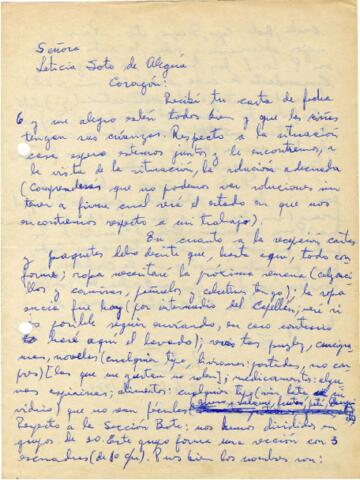 Señora
Leticia Soto de Alegría
Corazón:
Recibí tu carta de fecha
6 y me alegro estén todos bien y que los niños
tengan sus crianzas. Respecto a la situación
casa espero estemos juntos y le encontremos, a
la vista de la situación, la solución adecuada
(Comprenderás que no podemos ver soluciones sin
tener a firme cual será el estado en que nos
encontremos respecto a un trabajo).
En cuanto a la recepción cartas
y paquetes debo decirte que, hasta aquí, todo con
forme; ropa necesitaré la próxima semana (calzonci
llos y camisas, pañuelos y calcetines tengo); la ropa
sucia fué hoy (por intermedio del Capellán, veré si
es posible seguir enviando, en caso contrario
haré aquí el lavado);
mas, novelas (cualquier tipo, livianas: portadas, no con
) [las que me gustan no valen]; medicamentos: algu
nas aspirinas; alimentos: cualquier tipo (sin lata en
vidrio) que no sean fécules
Respecto a la Sección Bote: nos hemos divididos en
grupos de 30. Este grupo forma una sección con 3
escuadras (de 10 c/u). Pues bien los nombres son: